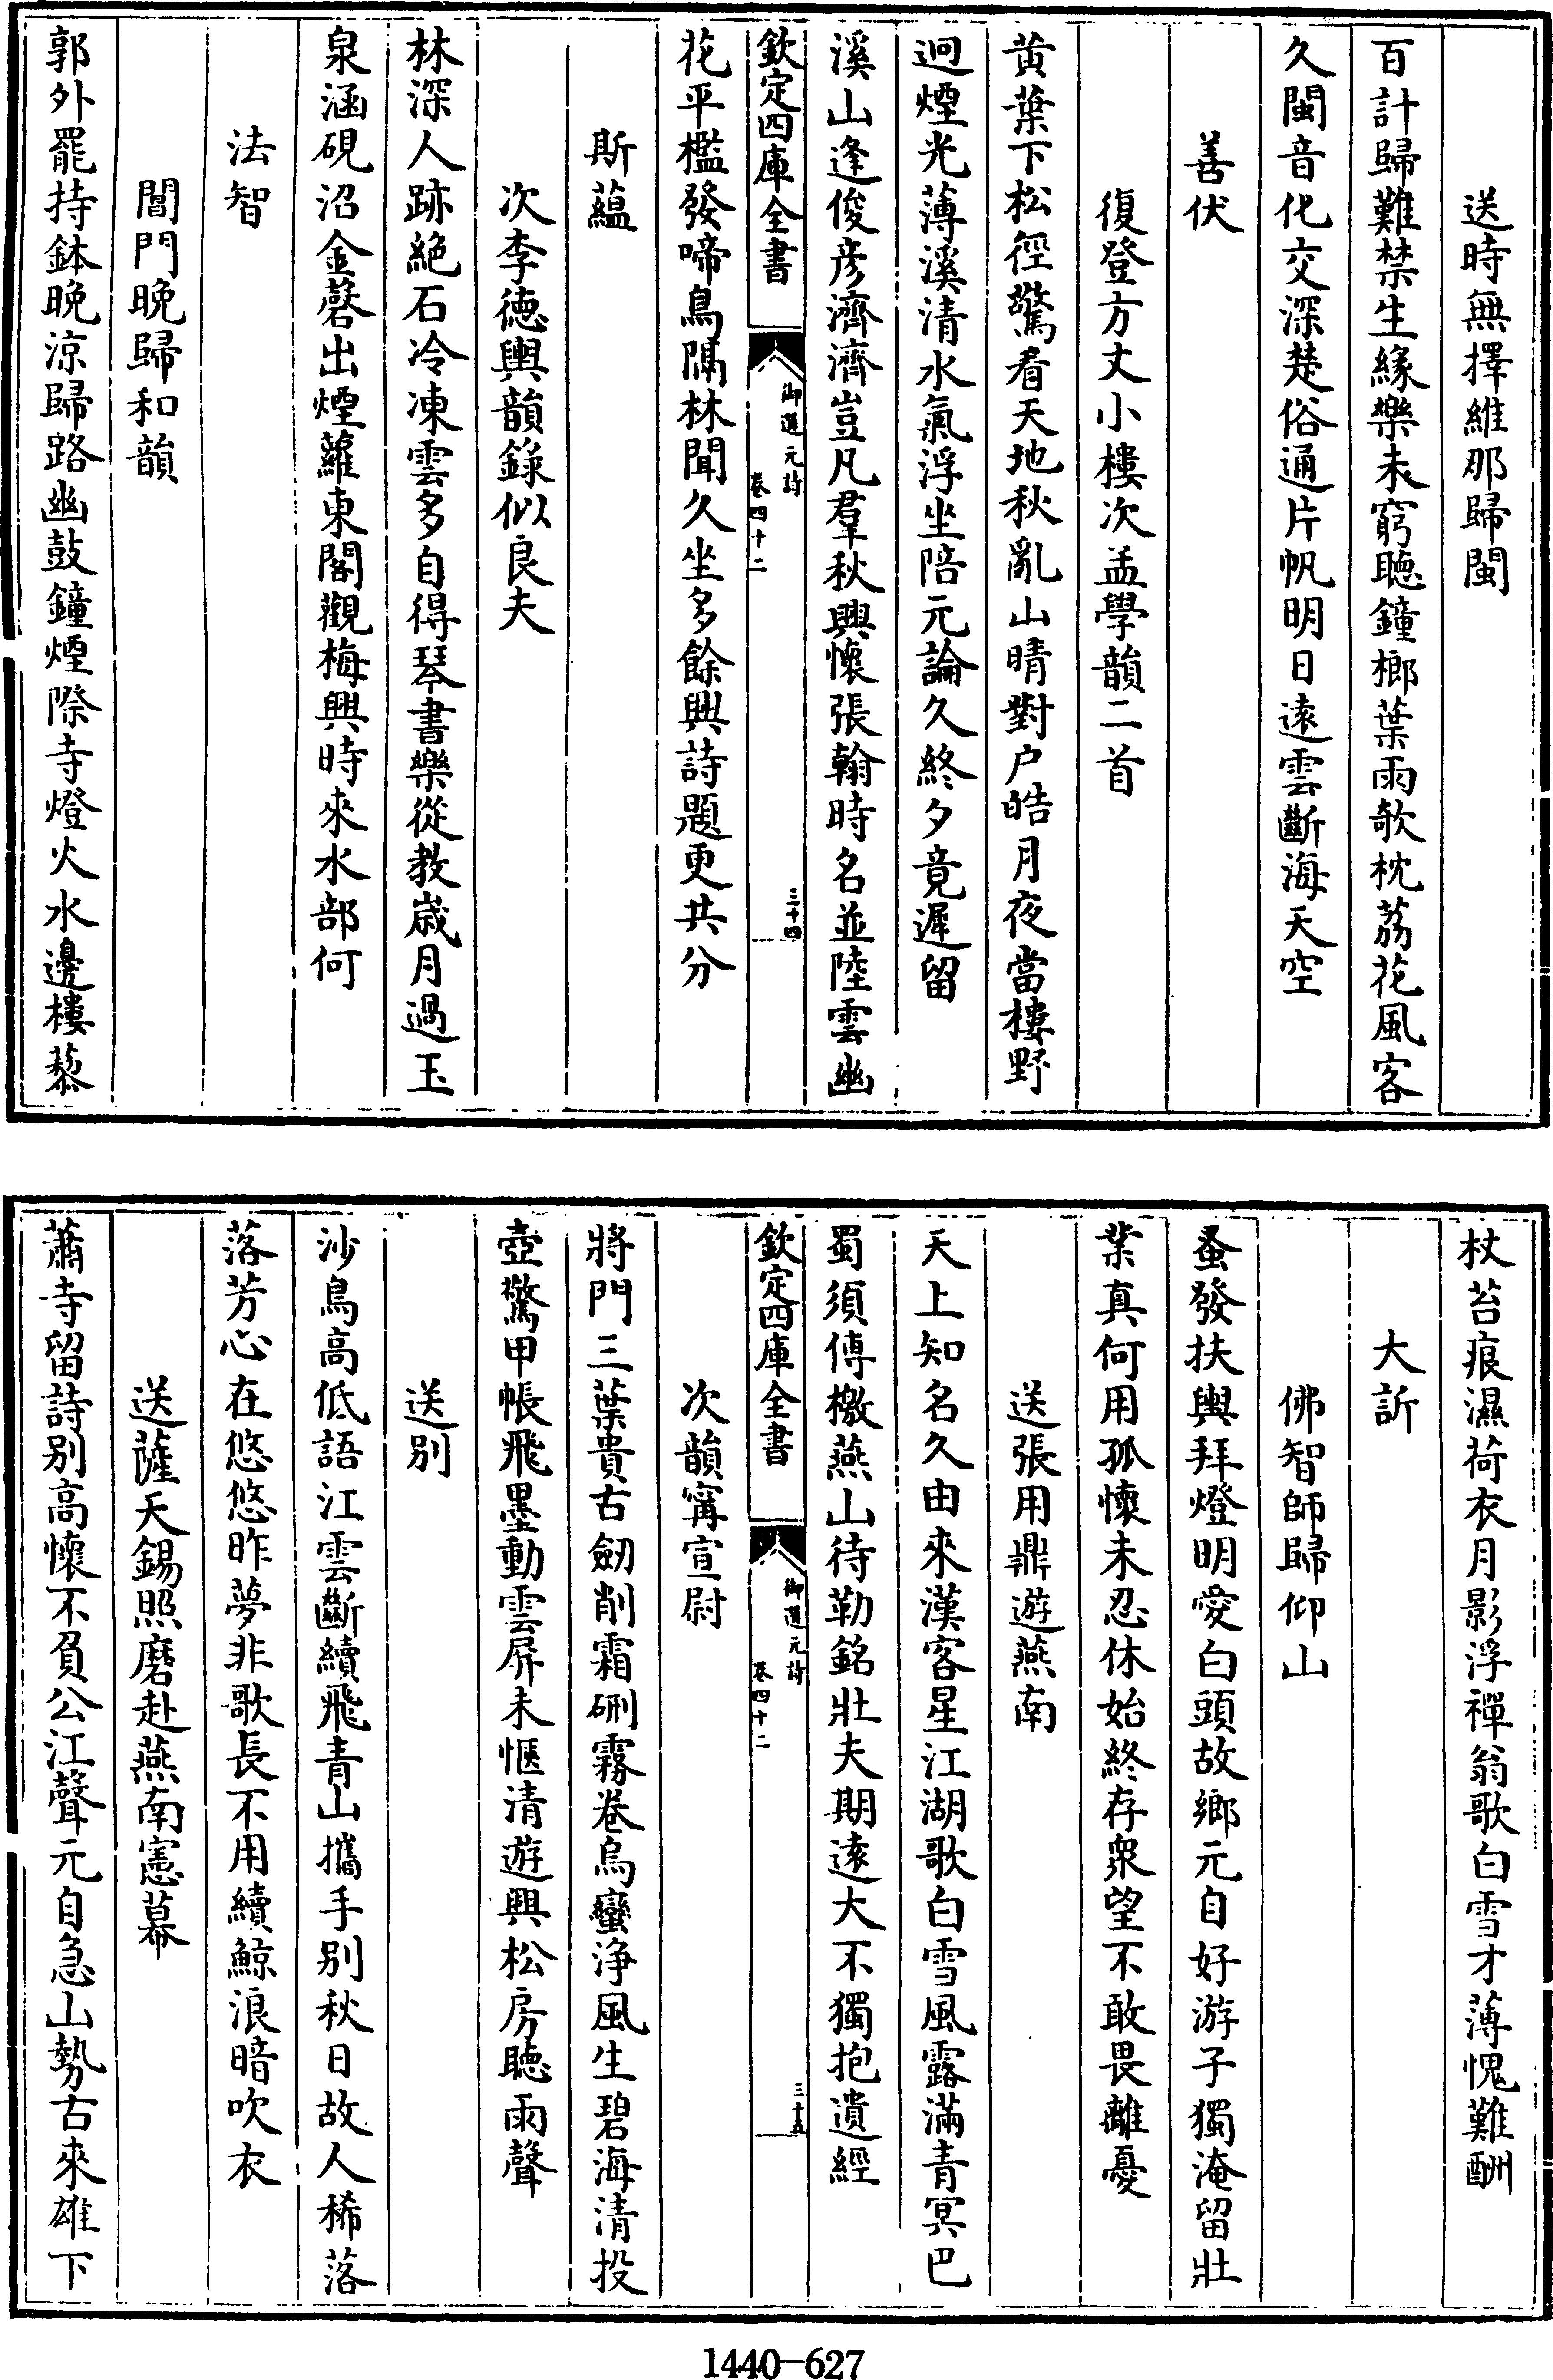 送時無擇維那歸閩
百計歸難禁生緣樂未窮聽鐘榔葉雨欹枕荔花風客
久閩音化交深楚俗通片帆明日遠雲斷海天空
善伏
復登方丈小樓次孟學韻二首
黄葉下松徑驚看天地秋亂山晴對户皓月夜當樓野
迥煙光薄溪清水氣浮坐陪元論久終夕竟遲留
溪山逢俊彦濟濟豈凡羣秋興懷張翰時名並陸雲幽
欽定四庫全書
御選元詩
卷四十二
三十四
花平檻發啼鳥隔林聞久坐多餘興詩題更共分
斯蘊
次李德輿韻錄似良夫
林深人跡絶石冷凍雲多自得琴書樂從教嵗月過玉
泉涵硯沼金磬出煙蘿東閣觀梅興時來水部何
法智
閶門晚歸和韻
郭外罷持鉢晚涼歸路幽鼓鐘煙際寺燈火水邊樓藜
杖苔痕濕荷衣月影浮禪翁歌白雪才薄愧難酬
大訢
佛智師歸仰山
蚤發扶輿拜燈明愛白頭故鄉元自好游子獨淹留壯
業真何用孤懷未忍休始終存衆望不敢畏離憂
送張用鼎遊燕南
天上知名久由來漢客星江湖歌白雪風露滿青冥巴
蜀須傳檄燕山待勒銘壯夫期遠大不獨抱遺經
欽定四庫全書
御選元詩
卷四十二
三十五
次韻甯宣尉
將門三葉貴古劒削霜硎霧卷烏蠻浄風生碧海清投
壺驚甲帳飛墨動雲屏未愜清遊興松房聽雨聲
送别
沙鳥高低語江雲斷續飛青山攜手别秋日故人稀落
落芳心在悠悠昨夢非歌長不用續鯨浪暗吹衣
送薩天錫照磨赴燕南憲幕
蕭寺留詩别高懷不負公江聲元自急山勢古來雄下
1440-627